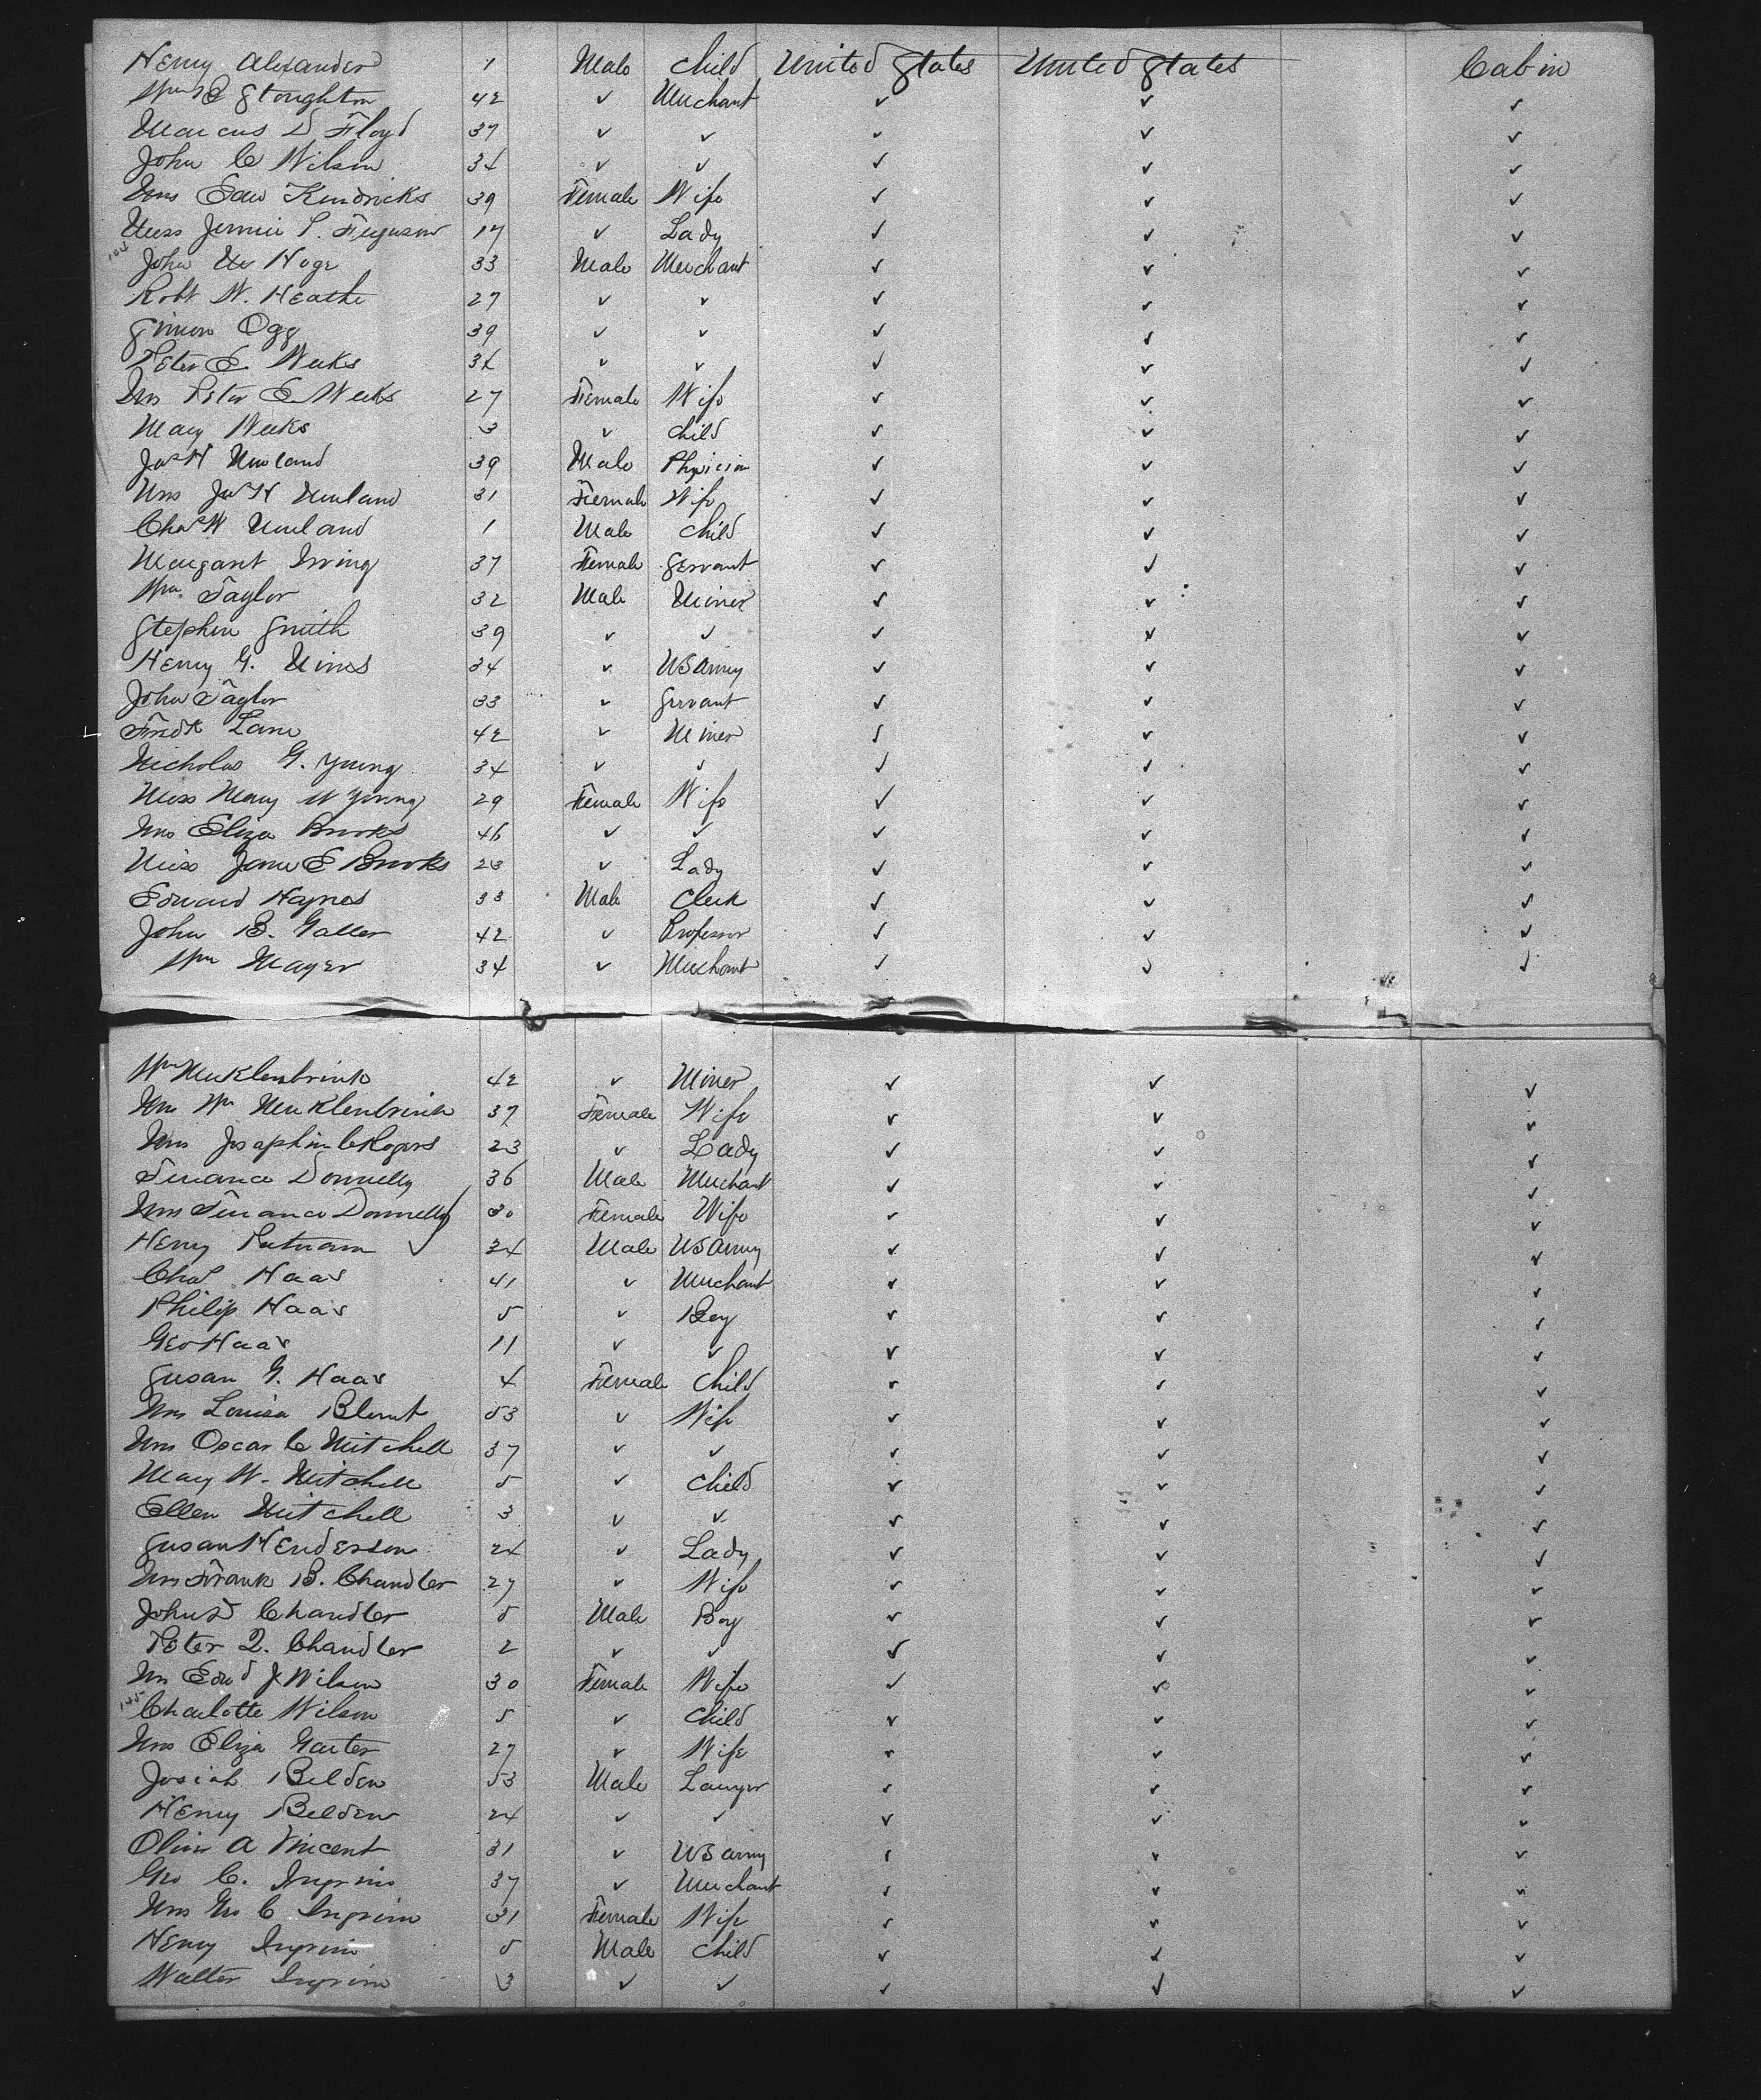 Henry Alexander 1 Male Child United States United States Cabin
Wm E Stoughton 42 ✓ Merchant ✓ ✓ ✓
Marcus D Floyd 37 ✓ ✓ ✓ ✓ ✓
John C Wilson 34 ✓ ✓ ✓ ✓ ✓
Mrs Edw Kendricks 39 Female Wife ✓ ✓ ✓
Miss Jennie P. Ferguson 17 ✓ Lady ✓ ✓ ✓
104 John Hoge 33 Male Merchant ✓ ✓ ✓
Robt W. Heathe 27 ✓ ✓ ✓ ✓ ✓
Simon Ogg 39 ✓ ✓ ✓ ✓ ✓
Peter E. Weeks 34 ✓ ✓ ✓ ✓ ✓
Mrs Peter E Weeks 27 Female Wife ✓ ✓ ✓
Mary Weeks 3 ✓ Child ✓ ✓ ✓
Jas H Newland 39 Male Physician ✓ ✓ ✓
Mrs Jas H Newland 31 Female Wife ✓ ✓ ✓
Chas W Newland 1 Male Child ✓ ✓ ✓
Margaret Irving 37 Female Servant ✓ ✓ ✓
Wm. Taylor 32 Male Miner ✓ ✓ ✓
Stephen Smith 39 ✓ ✓ ✓ ✓ ✓
Henry G. Mines 34 ✓ US Army ✓ ✓ ✓
John Taylor 33 ✓ Servant ✓ ✓ ✓
Fredk Lane 42 ✓ Miner ✓ ✓ ✓
Nicholas G. Young 34 ✓ ✓ ✓ ✓ ✓
Miss Mary W Young 29 Female Wife ✓ ✓ ✓
Mrs Eliza Brooks 46 ✓ ✓ ✓ ✓ ✓
Miss Jane E Brooks 23 ✓ Lady ✓ ✓ ✓
Edward Haynes 33 Male Clerk ✓ ✓ ✓
John B. Galler 42 ✓ Professor ✓ ✓ ✓
Wm Mager 34 ✓ Merchant ✓ ✓ ✓
Wm Mucklenbrink 42 ✓ Miner ✓ ✓ ✓
Mrs Wm Mucklenbrink 37 Female Wife ✓ ✓ ✓
Mrs Josephine C Rogers 23 ✓ Lady ✓ ✓ ✓
Terrance Donnelly 36 Male Merchant ✓ ✓ ✓
Mrs Terrance Donnelly 30 Female Wife ✓ ✓ ✓
Henry Putnam ✓ 34 Male US Army ✓ ✓ ✓
Chas Haas 41 ✓ Merchant ✓ ✓ ✓
Philip Haas 5 ✓ Boy ✓ ✓ ✓
Geo Haas 11 ✓ ✓ ✓ ✓ ✓
Susan G. Haas 4 Female Child ✓ ✓ ✓
Mrs Louisa Blunt 53 ✓ Wife ✓ ✓ ✓
Mrs Oscar C Mitchell 37 ✓ ✓ ✓ ✓ ✓
Mary W. Mitchell 5 ✓ Child ✓ ✓ ✓
Ellen Mitchell 3 ✓ ✓ ✓ ✓ ✓
Susan Henderson 24 ✓ Lady ✓ ✓ ✓
Mrs Frank B. Chandler 27 ✓ Wife ✓ ✓ ✓
John D Chandler 5 Male Boy ✓ ✓ ✓
Peter Q. Chandler 2 ✓ ✓ ✓ ✓ ✓
Mrs Edwd J Wilson 30 Female Wife ✓ ✓ ✓
145 Charlotte Wilson 5 ✓ Child ✓ ✓ ✓
Mrs Eliza Garter 27 ✓ Wife ✓ ✓ ✓
Josiah Belden 53 Male Lawyer ✓ ✓ ✓
Henry Belden 24 ✓ ✓ ✓ ✓ ✓
Oliver A Vincent 31 ✓ US Army ✓ ✓ ✓
Geo C. Ingrim 37 ✓ Merchant ✓ ✓ ✓
Mrs Geo C Ingrim 31 Female Wife ✓ ✓ ✓
Henry Ingrim 5 Male Child ✓ ✓ ✓
Walter Ingrim 3 ✓ ✓ ✓ ✓ ✓